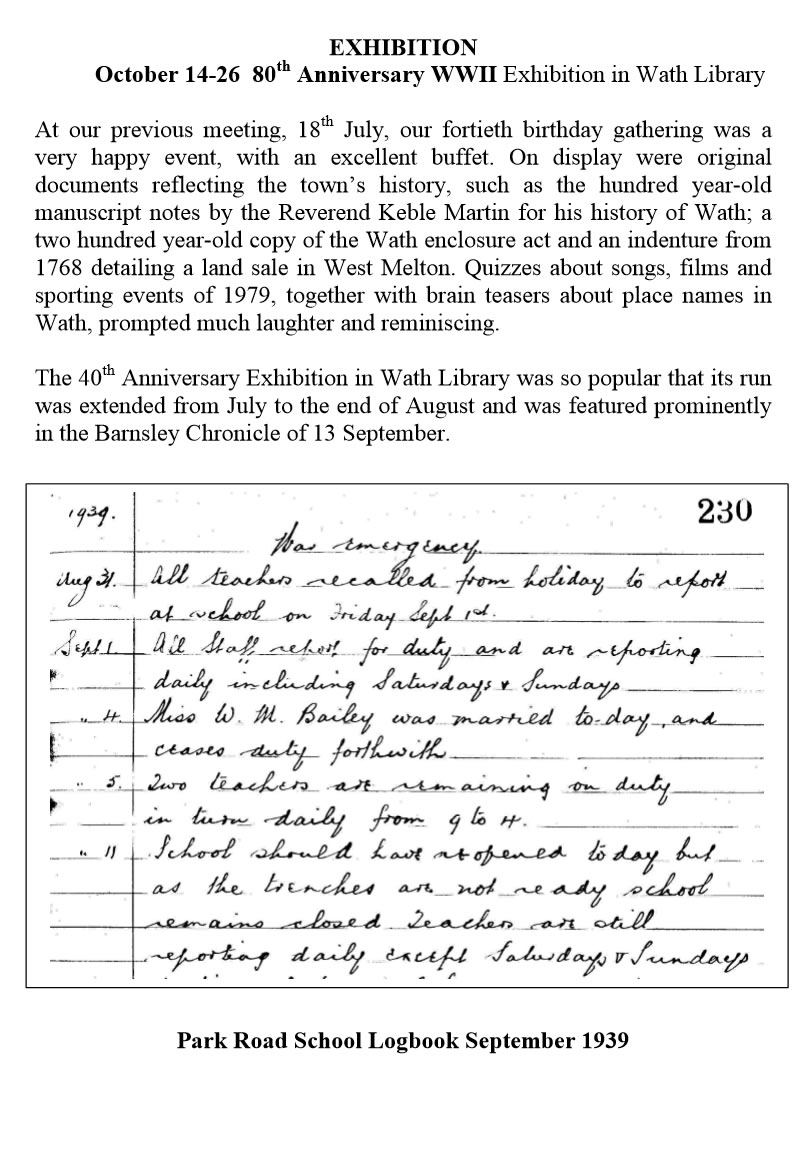 EXHIBITION
October 14-26 80th Anniversary WWII Exhibition in Wath Library
At our previous meeting, 18th July, our fortieth birthday gathering was a
very happy event, with an excellent buffet. On display were original
documents reflecting the town's history, such as the hundred year-old
manuscript notes by the Reverend Keble Martin for his history of Wath; a
two hundred year-old copy of the Wath enclosure act and an indenture from
1768 detailing a land sale in West Melton. Quizzes about songs, films and
sporting events of 1979, together with brain teasers about place names in
Wath, prompted much laughter and reminiscing.
The 40th Anniversary Exhibition in Wath Library was so popular that its run
was extended from July to the end of August and was featured prominently
in the Barnsley Chronicle of 13 September.
1939. 230
War emergency.
Aug 31. All teachers recalled from holiday to report
at school on Friday Sept 1st.
Sept 1 All Staff report for duty and are reporting
daily including Saturdays & Sundays
" 4. Miss W. M. Bailey was married to-day, and
ceases duty forthwith
" 5. Two teachers are remaining on duty
in turn daily from 9 to 4.
" 11 School should have reopened today but
as the trenches are not ready school
remains closed. Teachers are still
reporting daily except Saturdays & Sundays
Park Road School Logbook September 1939